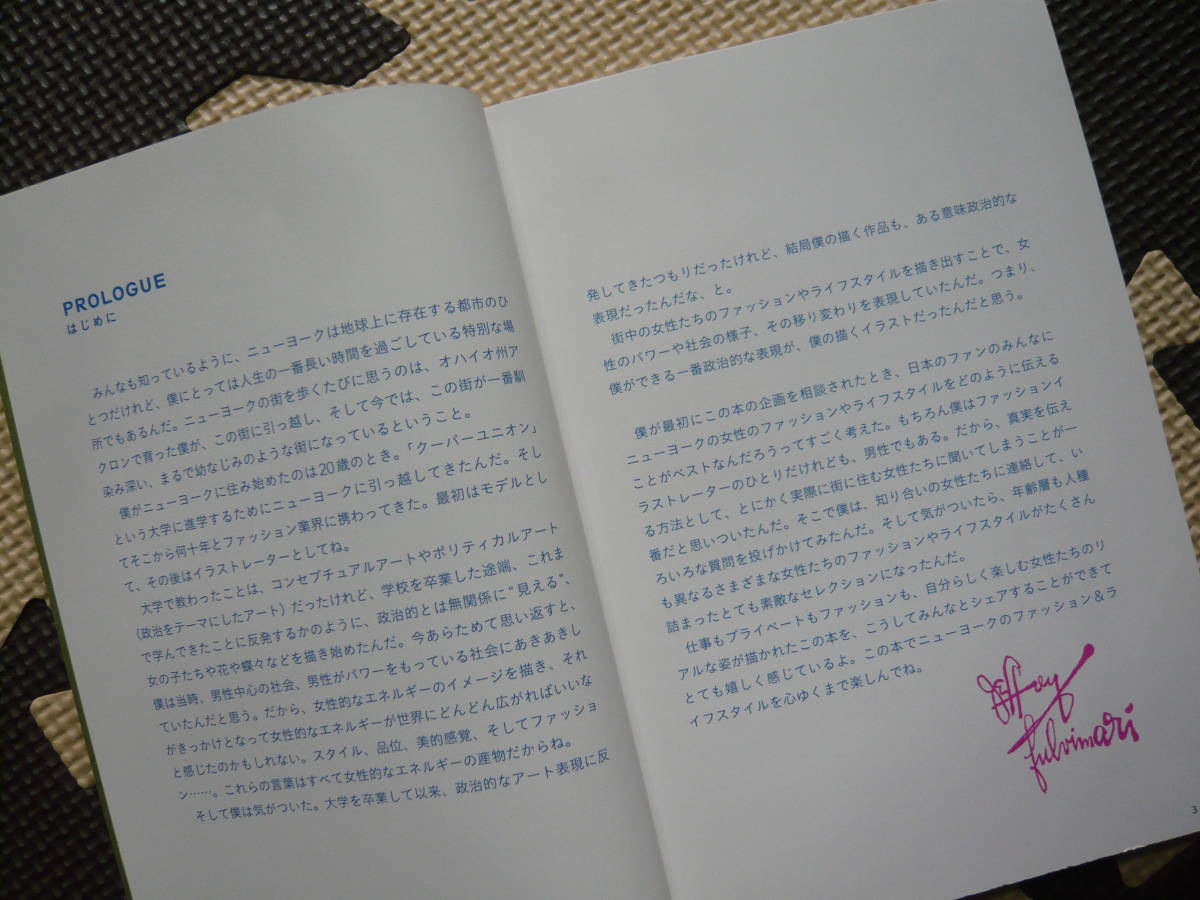 PROLOGUE
はじめに
みんなも知っているように、ニューヨークは地球上に存在する都市のひ
とつだけれど、僕にとっては人生の一番長い時間を過ごしている特別な場
所でもあるんだ。ニューヨークの街を歩くたびに思うのは、オハイオ州ア
クロンで育った僕が、この街に引っ越し、そして今では、この街が一番馴
染み深い、まるで幼なじみのような街になっているということ。
僕がニューヨークに住み始めたのは20歳のとき。「クーパーユニオン」
という大学に進学するためにニューヨークに引っ越してきたんだ。そし
てそこから何十年とファッション業界に携わってきた。最初はモデルとし
て、その後はイラストレーターとしてね。
大学で教わったことは、コンセプチュアルアートやポリティカルアート
(政治をテーマにしたアート)だったけれど、学校を卒業した途端、これま
で学んできたことに反発するかのように、政治的とは無関係に“見える”、
女の子たちや花や蝶々などを描き始めたんだ。今あらためて思い返すと、
僕は当時、男性中心の社会、男性がパワーをもっている社会にあきあきし
ていたんだと思う。だから、女性的なエネルギーのイメージを描き、それ
がきっかけとなって女性的なエネルギーが世界にどんどん広がればいいな
と感じたのかもしれない。スタイル、品位、美的感覚、そしてファッショ
ン……。これらの言葉はすべて女性的なエネルギーの産物だからね。
そして僕は気がついた。大学を卒業して以来、政治的なアート表現に反
発してきたつもりだったけれど、結局僕の描く作品も、ある意味政治的な
表現だったんだな、と。
街中の女性たちのファッションやライフスタイルを描き出すことで、女
性のパワーや社会の様子、その移り変わりを表現していたんだ。つまり、
僕ができる一番政治的な表現が、僕の描くイラストだったんだと思う。
僕が最初にこの本の企画を相談されたとき、日本のファンのみんなに
ニューヨークの女性のファッションやライフスタイルをどのように伝える
ことがベストなんだろうってすごく考えた。もちろん僕はファッションイ
ラストレーターのひとりだけれども、男性でもある。だから、真実を伝え
る方法として、とにかく実際に街に住む女性たちに聞いてしまうことが一
番だと思いついたんだ。そこで僕は、知り合いの女性たちに連絡して、い
ろいろな質問を投げかけてみたんだ。そして気がついたら、年齢層も人種
も異なるさまざまな女性たちのファッションやライフスタイルがたくさん
詰まったとても素敵なセレクションになったんだ。
仕事もプライベートもファッションも、自分らしく楽しむ女性たちのリ
アルな姿が描かれたこの本を、こうしてみんなとシェアすることができて
とても嬉しく感じているよ。この本でニューヨークのファッション＆ラ
イフスタイルを心ゆくまで楽しんでね。
Jeffrey
fulvimari
3